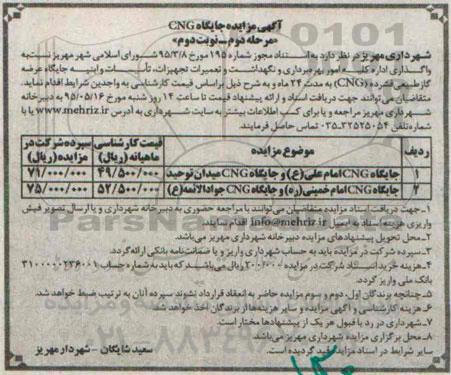 آگهی مزایده جایگاه CNG
«مرحله دوم – نوبت دوم»
شهرداری مهریز در نظر دارد به استناد مجوز شماره ۱۹۵ مورخ ۹۵/۳/۸ شورای اسلامی شهر مهریز نسبت به
واگذاری اداره کلیه امور بهره‌برداری و نگهداشت و تعمیرات تجهیزات، تأسیسات و ابنیه جایگاه عرضه
گاز طبیعی فشرده (CNG) به مدت ۲۴ ماه و به شرح ذیل براساس قیمت کارشناسی به واجدین شرایط اقدام نماید.
متقاضیان می‌توانند جهت دریافت اسناد و ارائه پیشنهاد قیمت تا ساعت ۱۴ روز شنبه مورخ ۹۵/۰۵/۱۶ به دبیرخانه
شهرداری مهریز مراجعه و یا برای کسب اطلاعات بیشتر به سایت شهرداری به آدرس www.mehriz.ir و یا با
شماره تلفن ۰۳۵-۳۲۵۲۵۰۵۴ تماس حاصل فرمایند.
ردیف موضوع مزایده قیمت کارشناسی ماهیانه (ریال) سپرده شرکت در مزایده (ریال)
۱ جایگاه CNG امام علی (ع) و جایگاه CNG میدان توحید ۴۹/۵۰۰/۰۰۰ ۷۱/۰۰۰/۰۰۰
۲ جایگاه CNG امام خمینی (ره) و جایگاه CNG جوادالائمه (ع) ۵۲/۵۰۰/۰۰۰ ۷۵/۰۰۰/۰۰۰
۱- جهت دریافت اسناد مزایده متقاضیان می‌توانند با مراجعه حضوری به دبیرخانه شهرداری و یا ارسال تصویر فیش
واریزی هزینه اسناد به ایمیل info@mehriz.ir اقدام نمایند.
۲- محل تحویل پیشنهادهای مزایده دبیرخانه شهرداری مهریز می‌باشد.
۳- سپرده شرکت در مزایده باید به حساب شهرداری واریز و یا ضمانت‌نامه بانکی ارائه گردد.
۴- هزینه خرید اسناد شرکت در مزایده ۲۰۰/۰۰۰ ریال می‌باشد که باید به شماره حساب
بانک ملی واریز گردد.
۵- چنانچه برندگان اول، دوم و سوم مزایده حاضر به انعقاد قرارداد نشوند سپرده آنان به ترتیب ضبط خواهد شد.
۶- هزینه کارشناسی و آگهی مزایده و سایر هزینه‌ها از برندگان اخذ خواهد شد.
۷- شهرداری در رد یا قبول هر یک از پیشنهادها مختار است.
۸- محل برگزاری مزایده شهرداری مهریز می‌باشد.
سایر شرایط در اسناد مزایده قید گردیده است.
سعید شایگان – شهردار مهریز